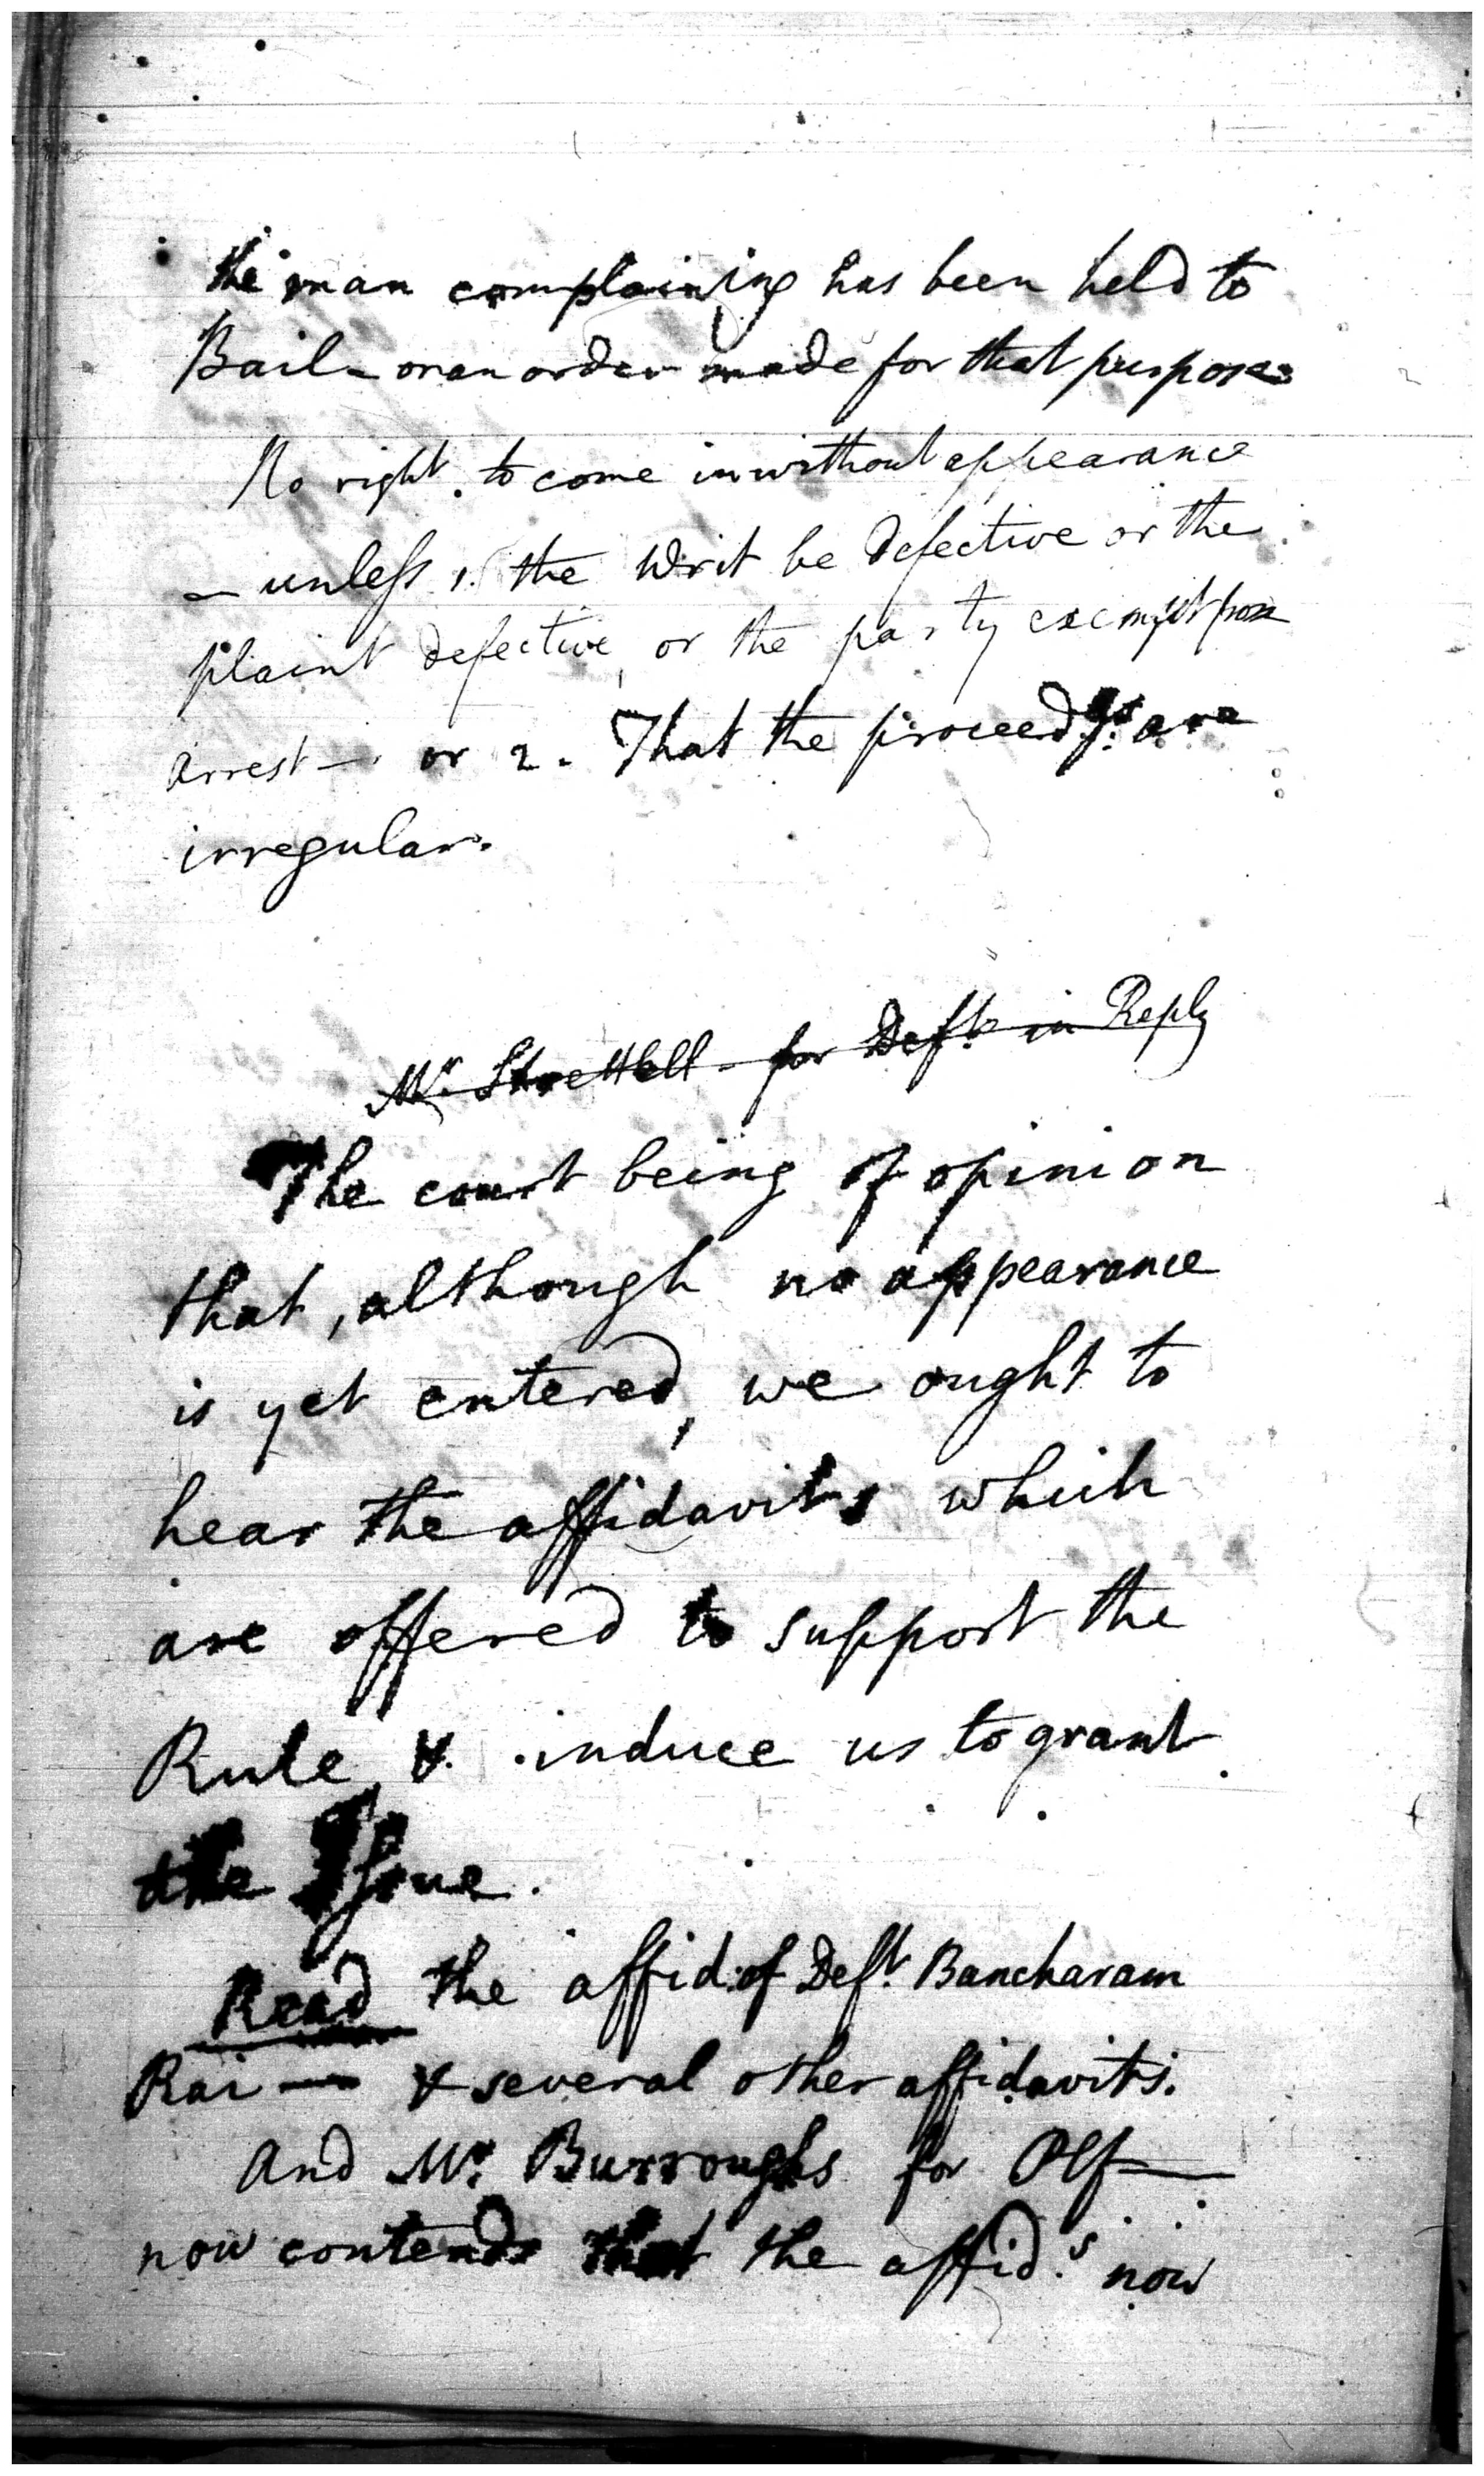 the man complaining has been held to
Bail – or an order made for that purpose
No right to come in without appearance
– unless 1. the Writ be defective or the
plaint defective, or the party exempt from
arrest – or 2. That the proceedgs. are
irregular.
Mr. Strettell – for Deft. in Reply
The court being of opinion
that, although no appearance
is yet entered, we ought to
hear the affidavits which
are offered to support the
Rule, & induce us to grant
the
Read the affid. of Deft. Bancharam
Rai — & several other affidavits.
And Mr. Burroughs for Plf —
now contends that the affid.s now